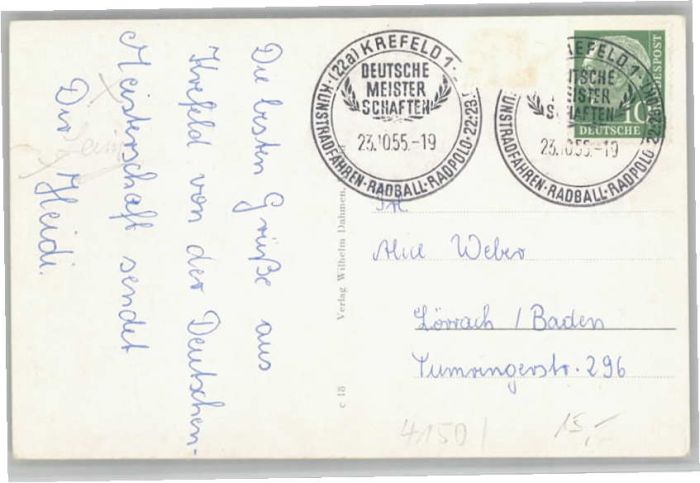 Die besten Grüße aus
Krefeld von der Deutschen-
Meisterschaft sendet
Dir Heidi.
(22a) KREFELD 1
DEUTSCHE
MEISTER
SCHAFTEN
23.10.55.-19
KUNSTRADFAHREN·RADBALL·RADPOLO·22.23.
KREFELD 1
DEUTSCHE
MEISTER
SCHAFTEN
23.10.55.-19
KUNSTRADFAHREN·RADBALL·RADPOLO·22.23.
BUNDESPOST
10
DEUTSCHE
Frl.
Alice Weber
Lörrach / Baden
Tumringerstr. 296
Verlag Wilhelm Dahmen,
c 18
4150/
15,-